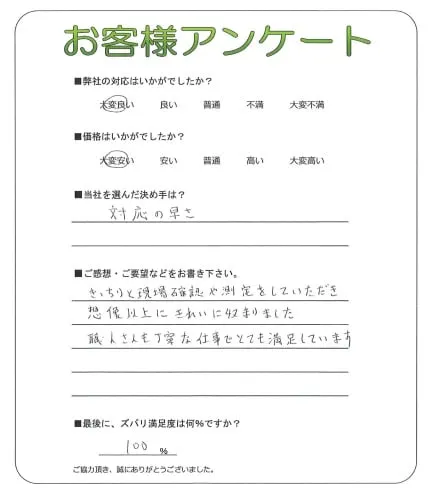 お客様アンケート
■弊社の対応はいかがでしたか?
大変良い 良い 普通 不満 大変不満
■価格はいかがでしたか?
大変安い 安い 普通 高い 大変高い
■当社を選んだ決め手は?
対応の早さ
■ご感想・ご要望などをお書き下さい。
きっちりと現場確認や測定をしていただき
想像以上にきれいに収まりました
職人さんも丁寧な仕事でとても満足しています
■最後に、ズバリ満足度は何%ですか?
100 %
ご協力頂き、誠にありがとうございました。